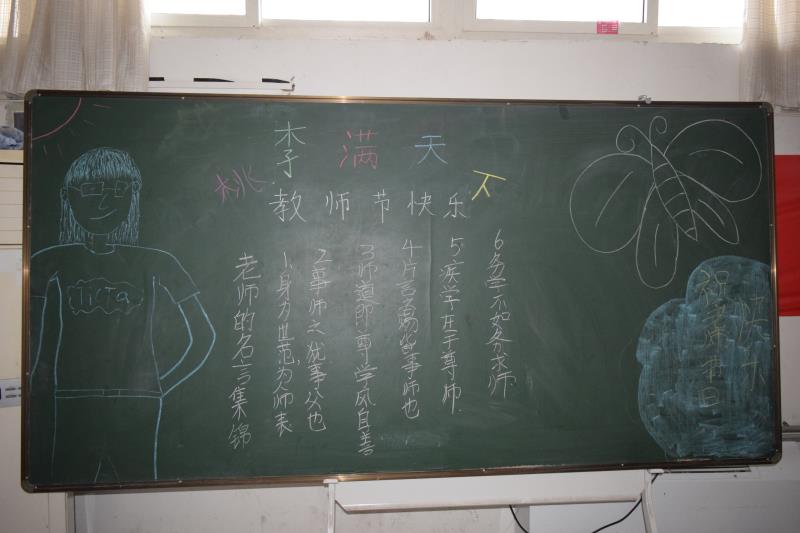 桃李满天下
教师节快乐
老师的名言集锦
1身为世范,为师表
2事师之犹事父也
3师道即尊学风自善
4片言之赐皆事师也
5疾学在于尊师
6务学不如务求师
TiTa
祝老师节日
快乐